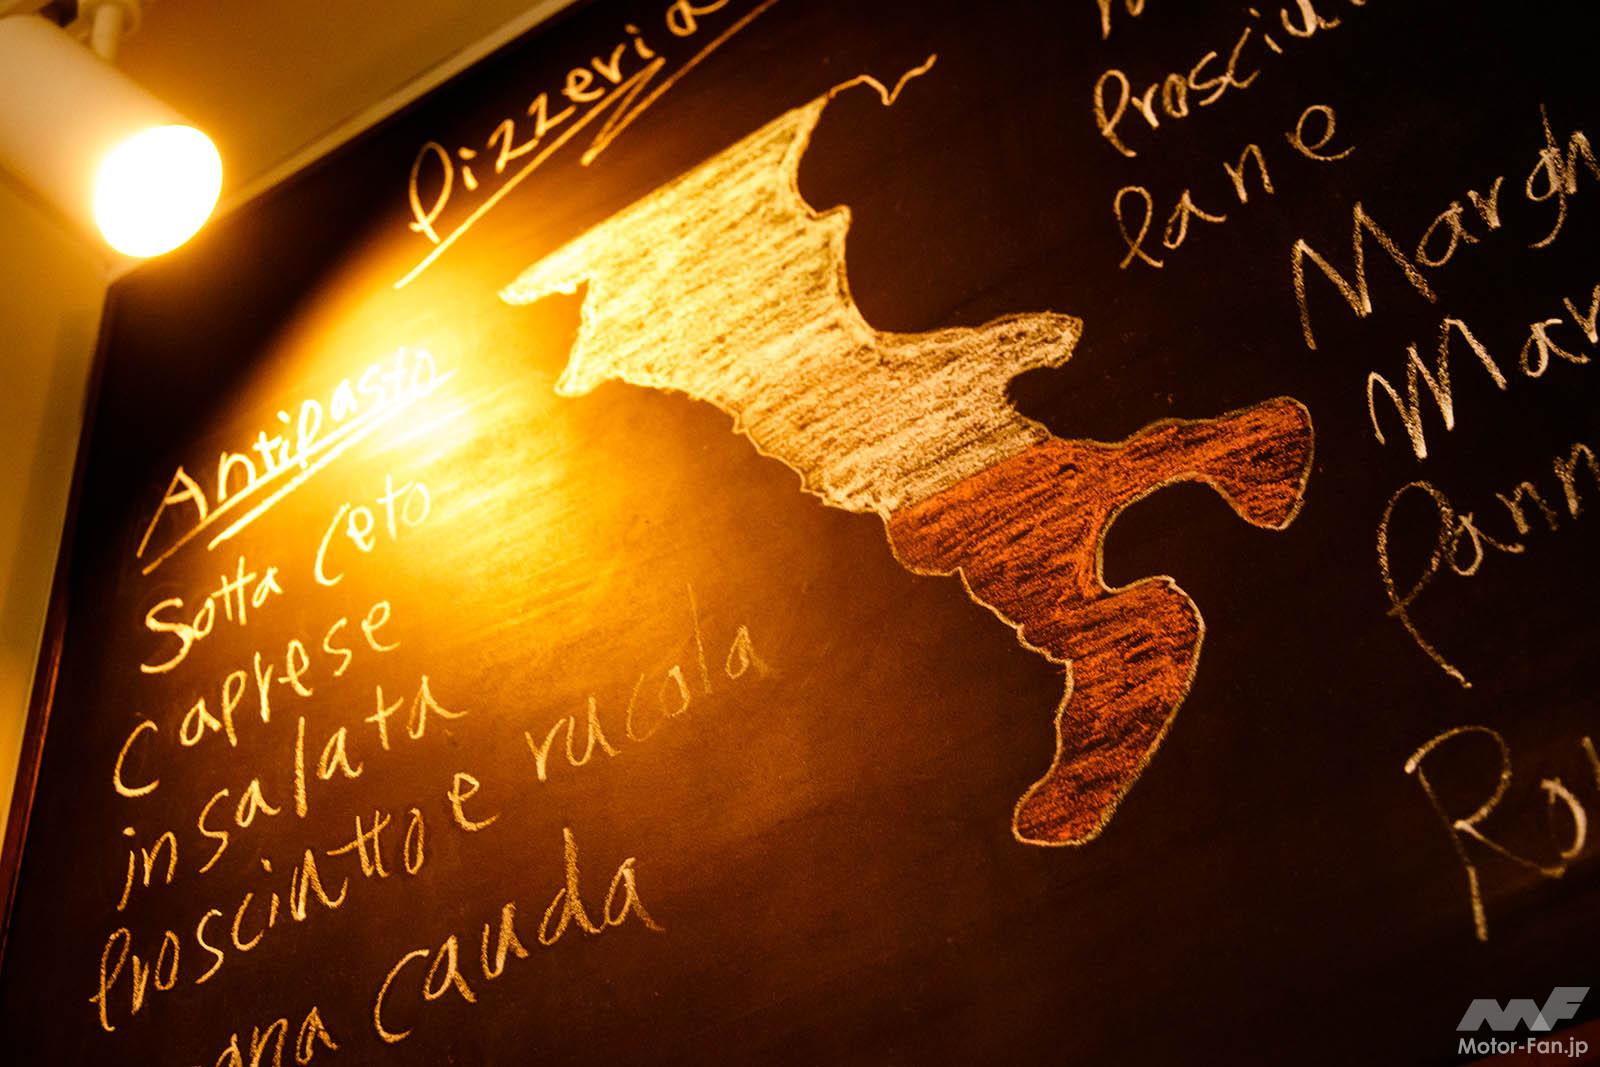 Pizzeria
Antipasto
Sotta Ceto
caprese
insalata
Prosciutto e rucola
cauda
Prosciu
Pane
Margh
Mar
Pann
Motor-Fan.jp